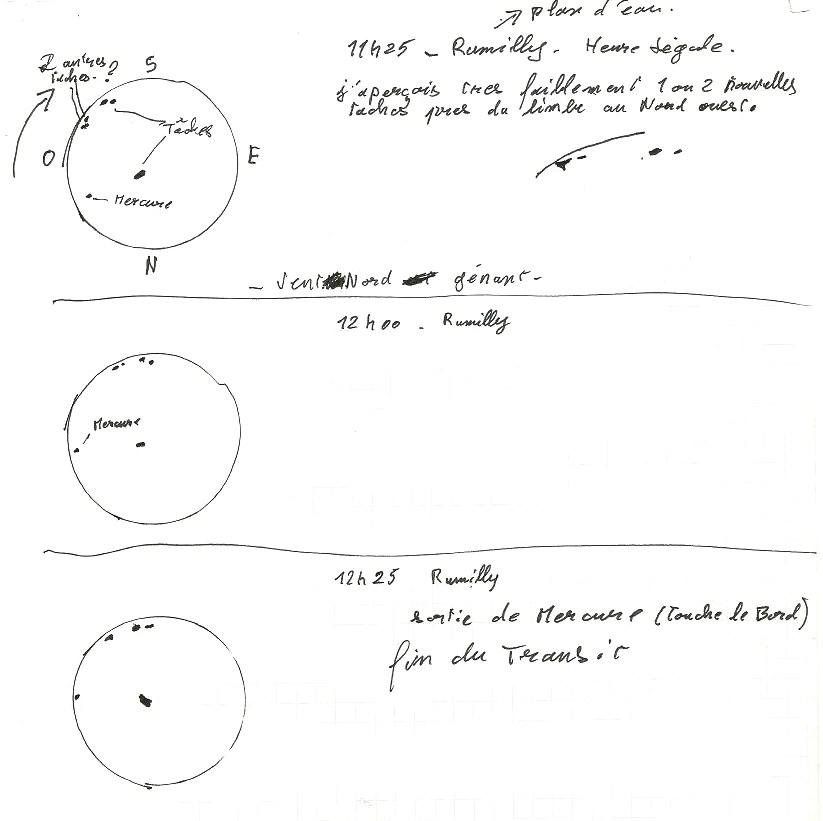 plan d'eau.
11h25 - Rumilly. Heure légale.
j'aperçois très faiblement 1 ou 2 nouvelles
taches près du limbe au Nord ouest.
2 autres
taches..?
S
Taches
O
E
Mercure
N
- Vent Nord gênant -
12h00 - Rumilly
Mercure
12h25 Rumilly
sortie de Mercure (Touche le Bord)
fin du Transit